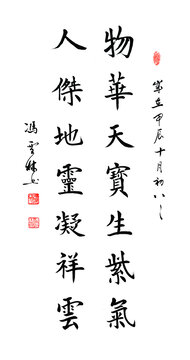 甲辰十月初八
物華天寶生紫氣
人傑地靈凝祥雲
馮雲